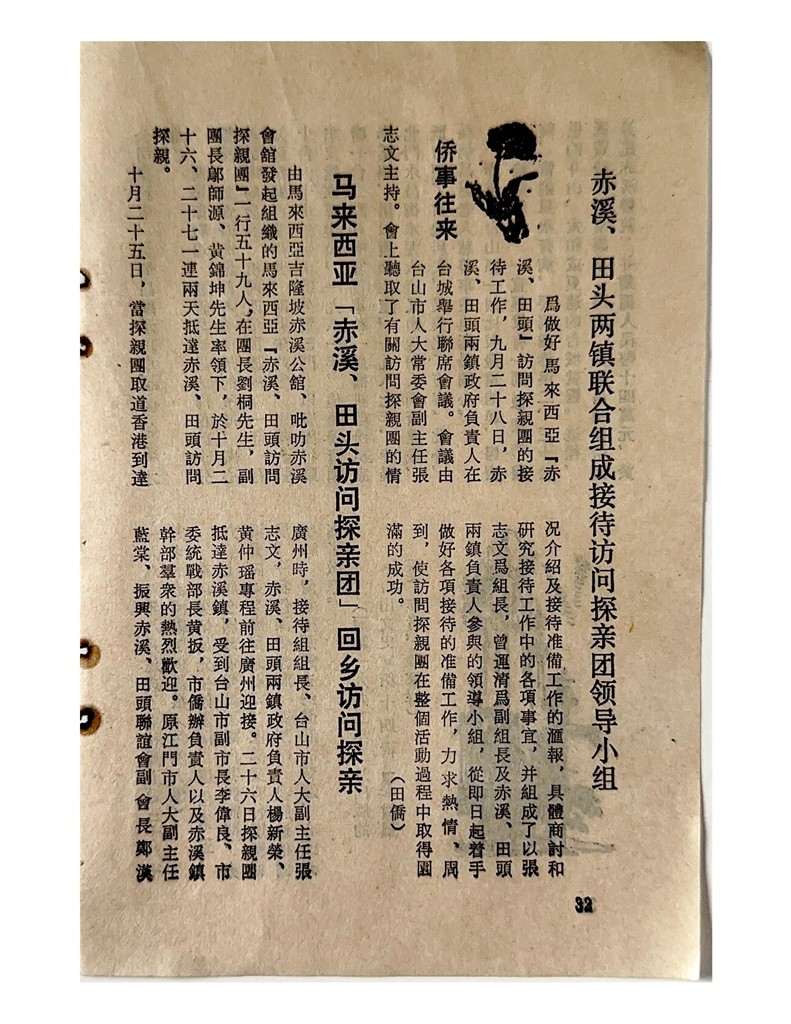 赤溪、田头两镇联合组成接待访问探亲团领导小组
侨事往来
爲做好馬來西亞『赤
溪、田頭』訪問探親團的接
待工作，九月二十八日，赤
溪、田頭兩鎮政府負責人在
台城舉行聯席會議。會議由
台山市人大常委會副主任張
志文主持。會上聽取了有關訪問探親團的情
况介紹及接待准備工作的滙報，具體商討和
研究接待工作中的各項事宜，并組成了以張
志文爲組長，曾運清爲副組長及赤溪、田頭
兩鎮負責人參與的領導小組，從即日起着手
做好各項接待的准備工作，力求熱情、周
到，使訪問探親團在整個活動過程中取得圓
滿的成功。
（田僑）
马来西亚「赤溪、田头访问探亲团」回乡访问探亲
由馬來西亞吉隆坡赤溪公館、吡叻赤溪
會舘發起組織的馬來西亞『赤溪、田頭訪問
探親團』一行五十九人，在團長劉桐先生，副
團長鄔師源、黄錦坤先生率領下，於十月二
十六、二十七一連兩天抵達赤溪、田頭訪問
探親。
十月二十五日，當探親團取道香港到達
廣州時，接待組組長、台山市人大副主任張
志文，赤溪、田頭兩鎮政府負責人楊新榮、
黄仲瑶專程前往廣州迎接。二十六日探親團
抵達赤溪鎮，受到台山市副市長李偉良、市
委統戰部長黄扳，市僑辦負責人以及赤溪鎮
幹部羣衆的熱烈歡迎。原江門市人大副主任
藍棠、振興赤溪、田頭聯誼會副會長鄭漢
32